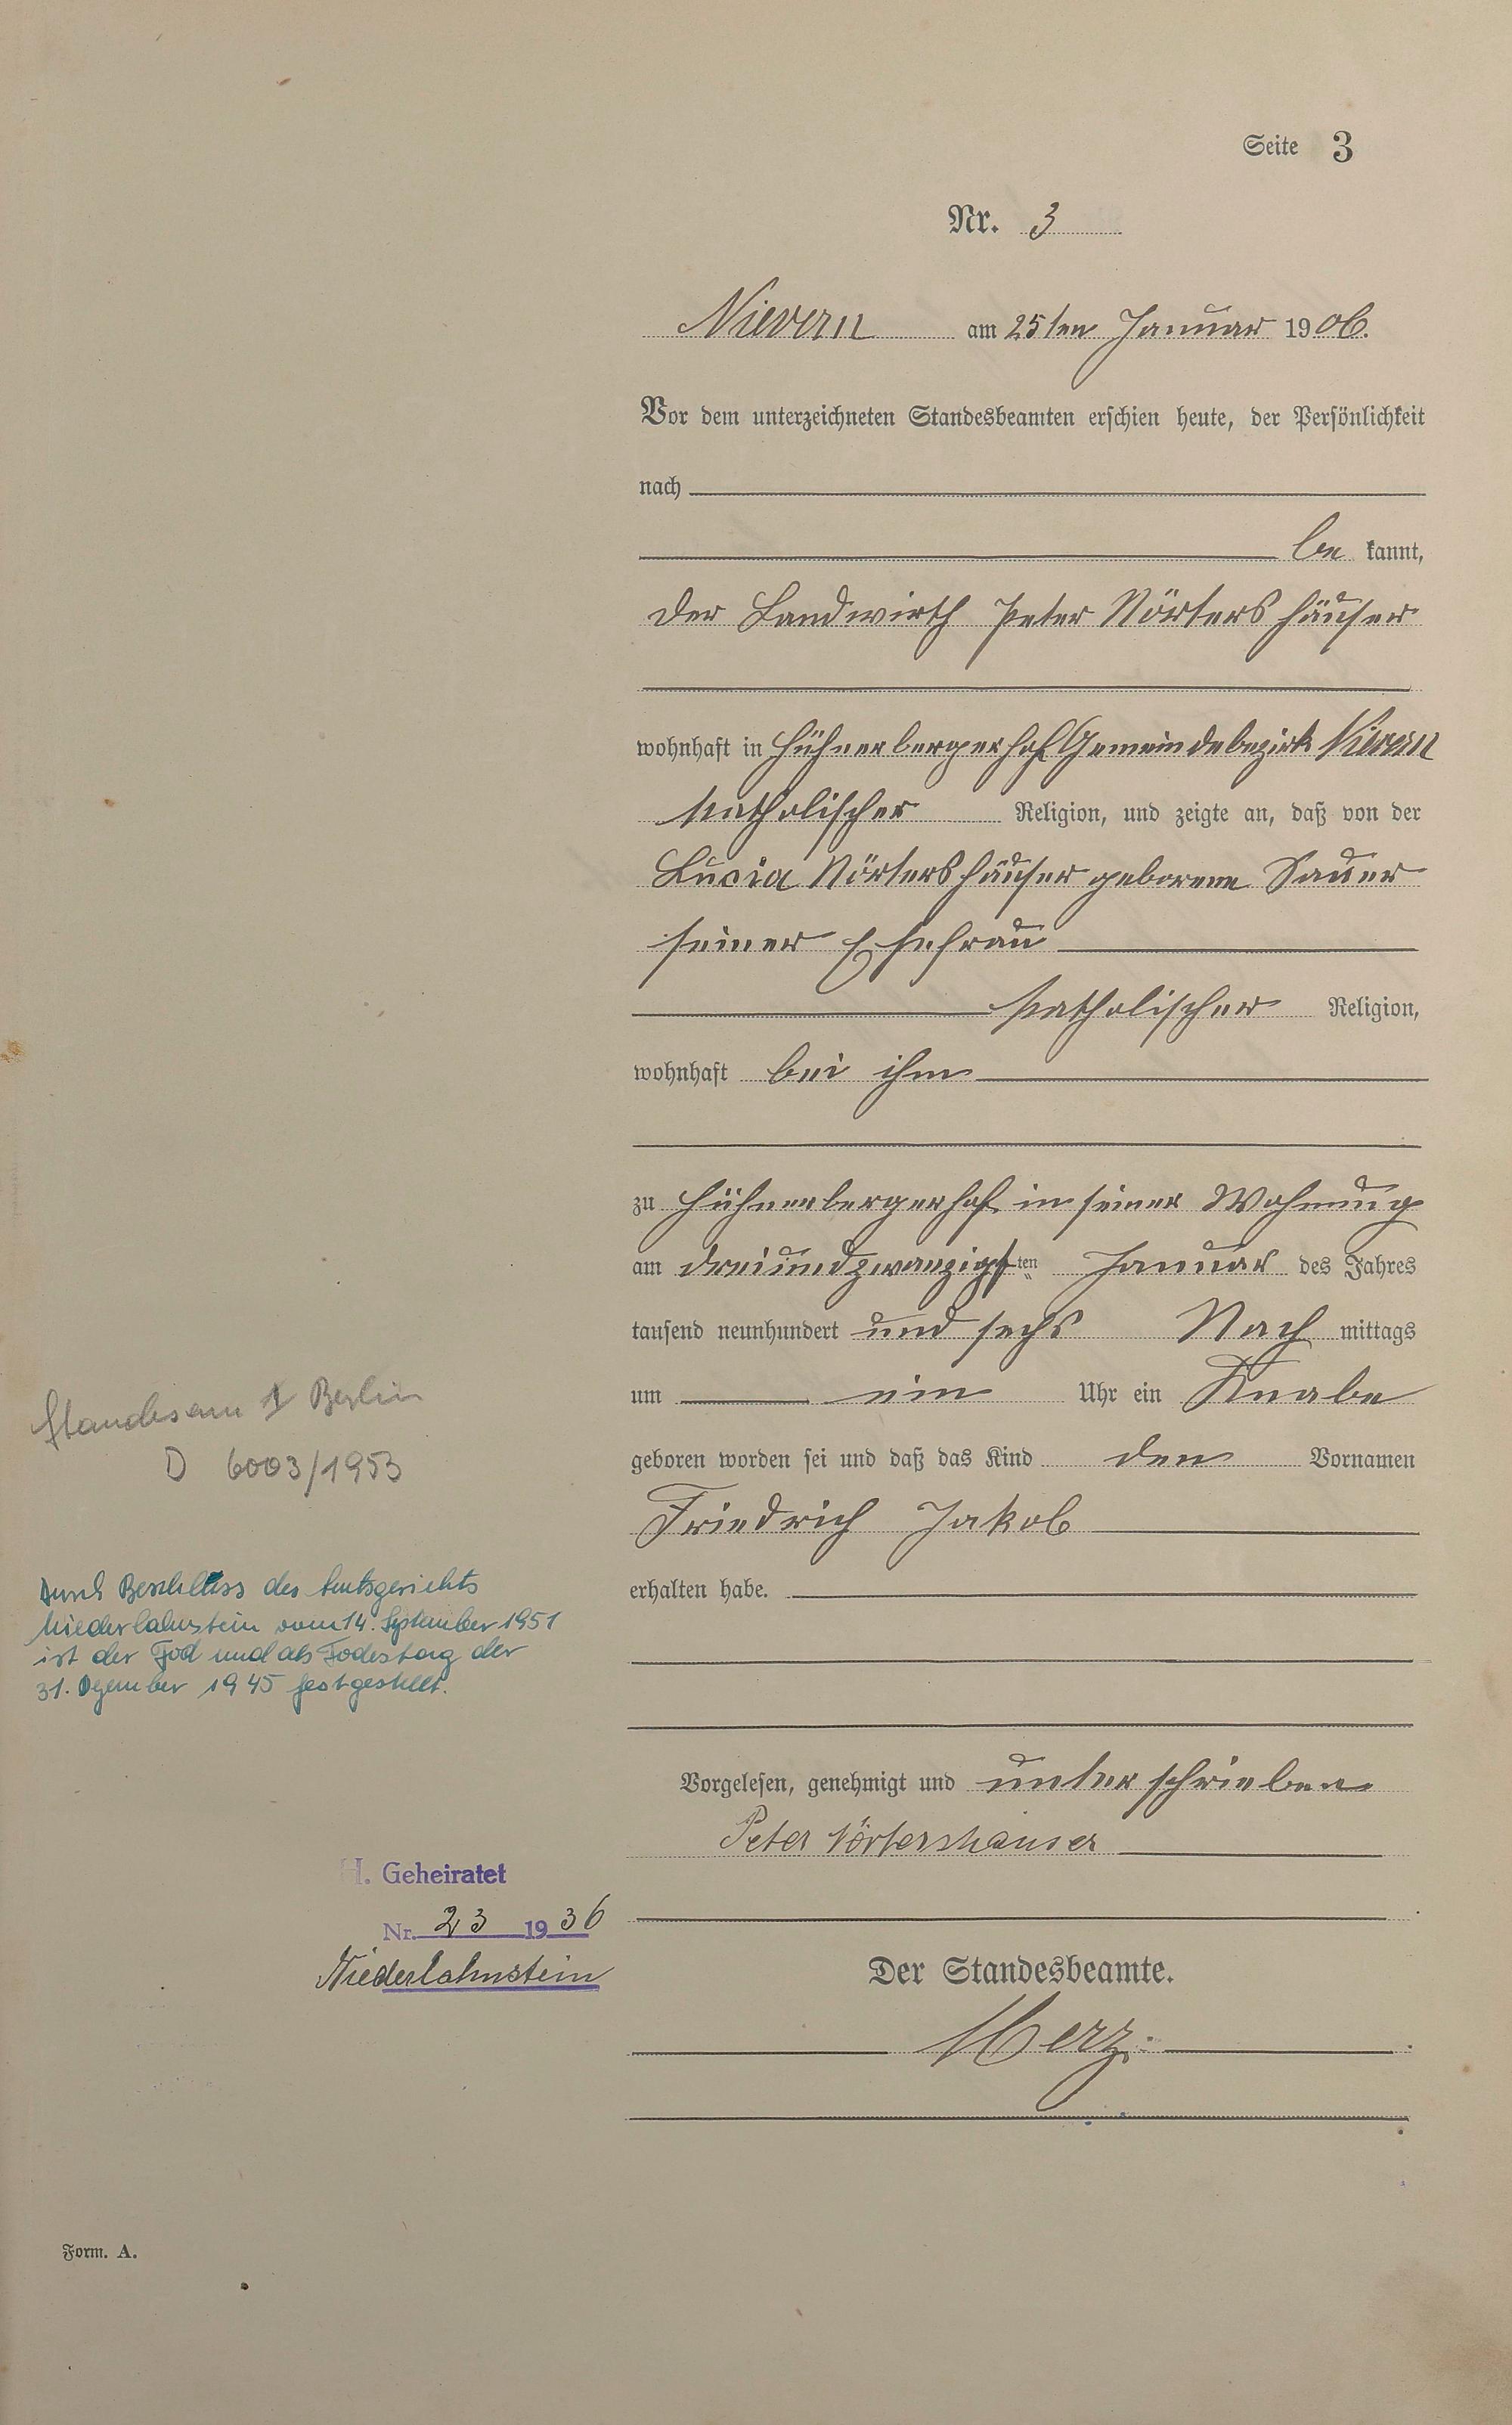 Seite 3
Nr. 3
Nievern am 25ten Januar 1906.
Vor dem unterzeichneten Standesbeamten erschien heute, der Persönlichkeit
nach
be kannt,
der Landwirth Peter Nörtershäuser
wohnhaft in Hühnerbergerhof Gemeindebezirk Nievern
katholischer Religion, und zeigte an, daß von der
Lucia Nörtershäuser geborene Sauer
seiner Ehefrau
katholischer Religion,
wohnhaft bei ihm
zu Hühnerbergerhof in seiner Wohnung
am dreiundzwanzigsten Januar des Jahres
tausend neunhundert und sechs Nach mittags
um ein Uhr ein Knabe
geboren worden sei und daß das Kind den Vornamen
Friedrich Jakob
erhalten habe.
Vorgelesen, genehmigt und unterschrieben
Peter Nörtershäuser
Der Standesbeamte.
Merz.
Standesam I Berlin
D 6003/1953
Durch Beschluss des Amtsgerichts
Niederlahnstein vom 14. September 1951
ist der Tod und als Todestag der
31. Dezember 1945 festgestellt.
H. Geheiratet
Nr. 23 1936
Niederlahnstein
Form. A.